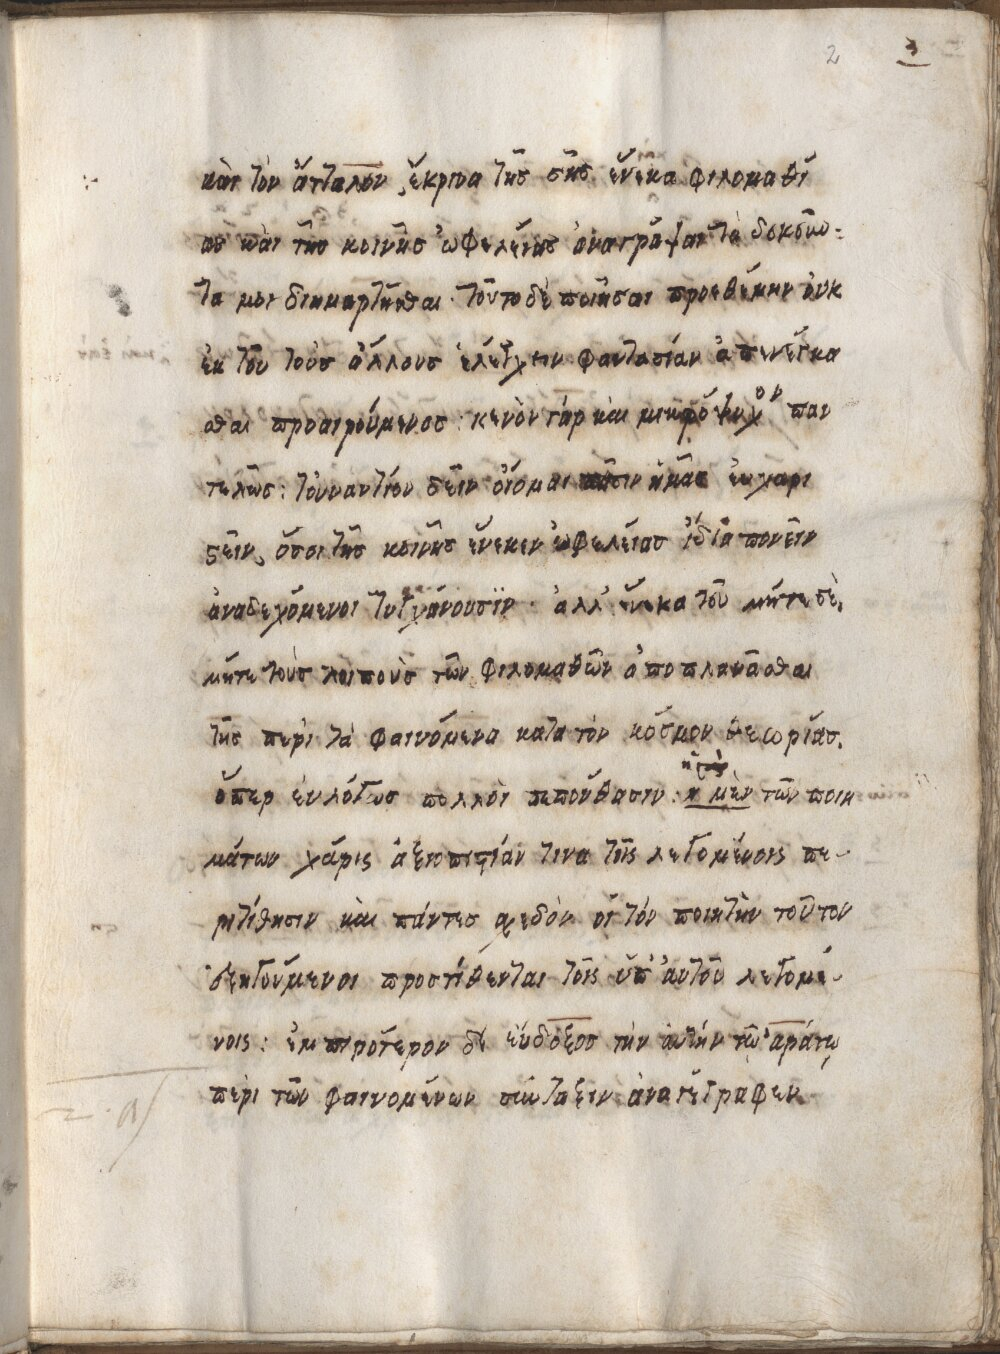 2 3
καὶ τὸν ἄτταλον, ἔκρινα τῆς σῆς ἕνεκα φιλομαθί
ας καὶ τῆς κοινῆς ὠφελείας ἀναγράψαι τὰ δοκοῦν-
τα μοι διημαρτῆσθαι· τοῦτο δὲ ποιῆσαι προεθέμην οὐκ
ἐκ τοῦ τοὺς ἄλλους ἐλέγχειν φαντασίαν ἀπενέγκα
σθαι προαιρούμενος: κενὸν γὰρ καὶ μικρόψυχον παν
τελῶς: τοὐναντίον δεῖν οἴομαι πᾶσιν ἡμᾶς εὐχαρι
στεῖν, ὅσοι τῆς κοινῆς ἕνεκεν ὠφελείας ἰδία πονεῖν
ἀναδεχόμενοι τυγχάνουσϊν· ἀλλ' ἕνεκα τοῦ μήτε σὲ,
μήτε τοὺς λοιποὺς τῶν φιλομαθῶν ἀποπλανᾶσθαι
τῆς περὶ τὰ φαινόμενα κατὰ τὸν κόσμον θεωρίας.
ὅπερ εὐλόγως πολλοὶ πεπόνθασιν: ἡ μὲν τῶν ποιη
μάτων χάρις ἀξιοπιστίαν τινα τοῖς λεγομένοις πε-
ριτίθησιν καὶ πάντες σχεδὸν οἱ τὸν ποιητὴν τοῦτον
ἐξηγούμενοι προστίθενται τοῖς ὑπ' αὐτοῦ λεγομέ-
νοις: ἐμπρότερον δὲ εὔδοξος τὴν αὐτὴν τῶ ἀράτω
περὶ τῶν φαινομένων σύνταξιν ἀναγέγραφεν.